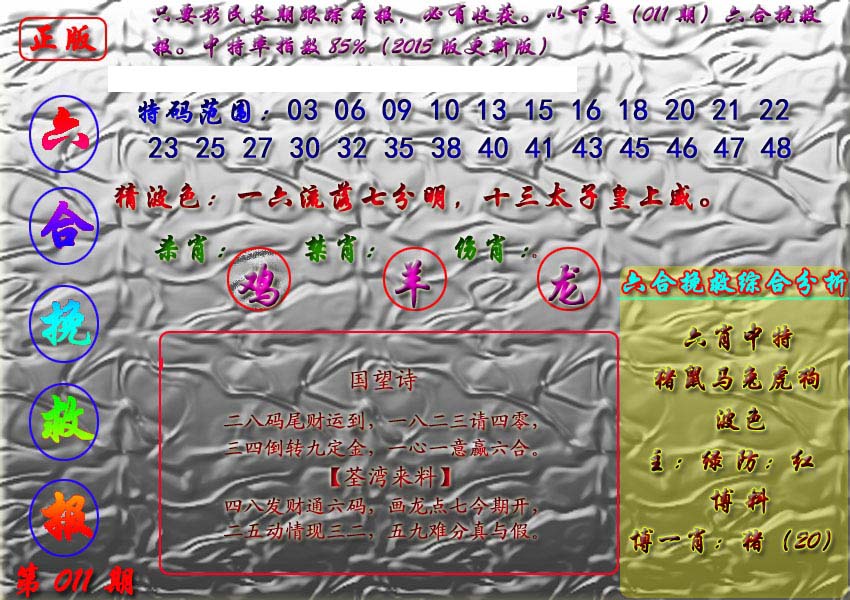 只要彩民长期跟踪本报，必有收获。以下是（011期）六合挽救
报。中特率指数85%（2015版更新版）
正版
六合挽救报
第011期
特码范围：03 06 09 10 13 15 16 18 20 21 22
23 25 27 30 32 35 38 40 41 43 45 46 47 48
猜波色：一六流落七分明，十三太子皇上威。
杀肖：鸡 禁肖：羊 伤肖：龙
国望诗
二八码尾财运到，一八二三请四零，
三四倒转九定金，一心一意赢六合。
【荃湾来料】
四八发财通六码，画龙点七今期开，
二五动情现三二，五九难分真与假。
六合挽救综合分析
六肖中特
猪鼠马兔虎狗
波色
主：绿防：红
博料
博一肖：猪（20）